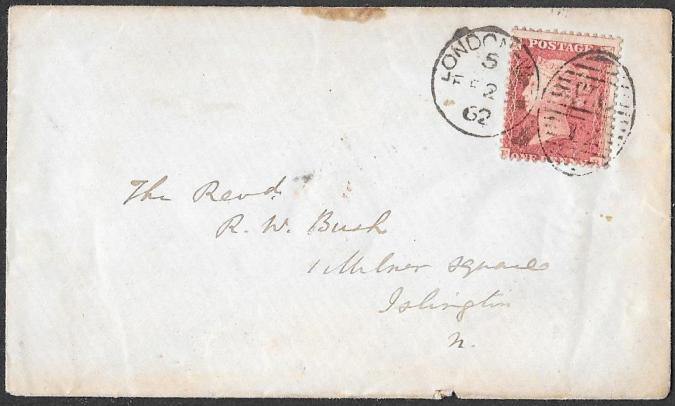 LONDON
5
FE 2
62
POSTAGE
ONE PENNY
The Revd.
R. W. Bush
1 Milner Square
Islington
N.